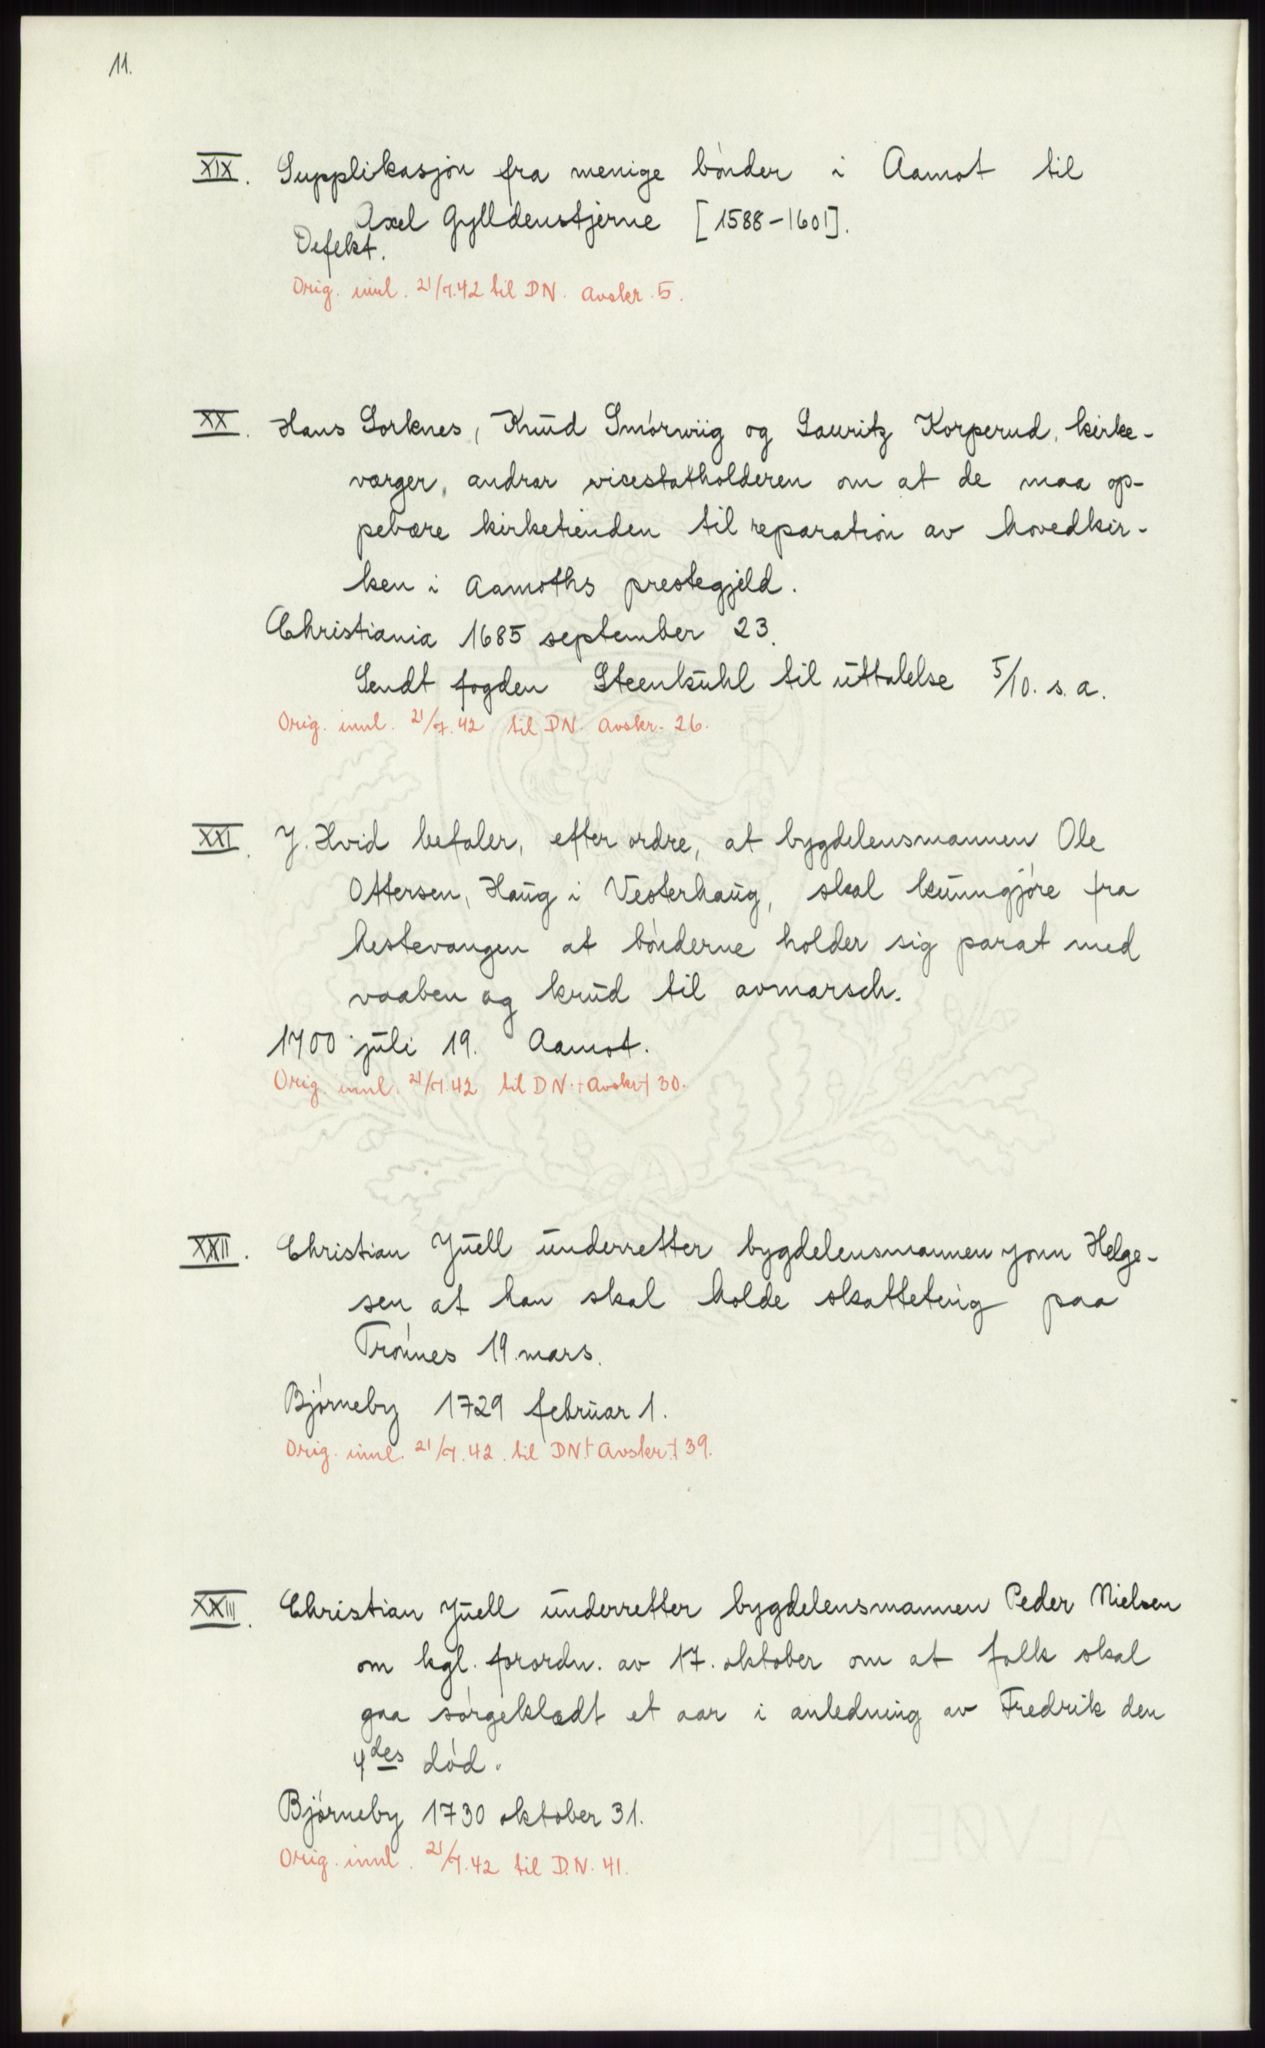 11.
XIX. Supplikasjon fra menige bønder i Aamot til
Axel Gylldenstjerne [1588-1601].
Defekt.
Orig. innl. 21/7.42 til DN. Avskr. 5.
XX. Hans Sorknes, Knud Smørwiig og Lauritz Korperud, kirke-
værger, andrar vicestatholderen om at de maa op-
pebære kirketienden til reparation av hovedkir-
ken i Aamoths prestegjeld.
Christiania 1685 september 23.
Sendt fogden Steenkuhl til uttalelse 5/10. s. a.
Orig. innl. 21/7.42 til DN. Avskr. 26.
XXI. J. Hvid befaler, efter ordre, at bygdelensmannen Ole
Ottersen, Haug i Vesterhaug, skal kunngjøre fra
hestevangen at bønderne holder sig parat med
vaaben og krud til avmarsch.
1700 juli 19. Aamot.
Orig. innl. 21/7.42 til DN. + Avskr + 30.
XXII. Christian Juell underretter bygdelensmannen Jonn Helge-
sen at han skal holde skatteting paa
Trønnes 19. mars.
Bjørneby 1729 februar 1.
Orig. innl. 21/7.42. til DN + Avskr. + 39.
XXIII. Christian Juell underretter bygdelensmannen Peder Nielsen
om kgl. forordn. av 17. oktober om at folk skal
gaa sørgeklædt et aar i anledning av Fredrik den
4des død.
Bjørneby 1730 oktober 31.
Orig. innl. 21/7.42 til D.N. 41.
ALVØEN